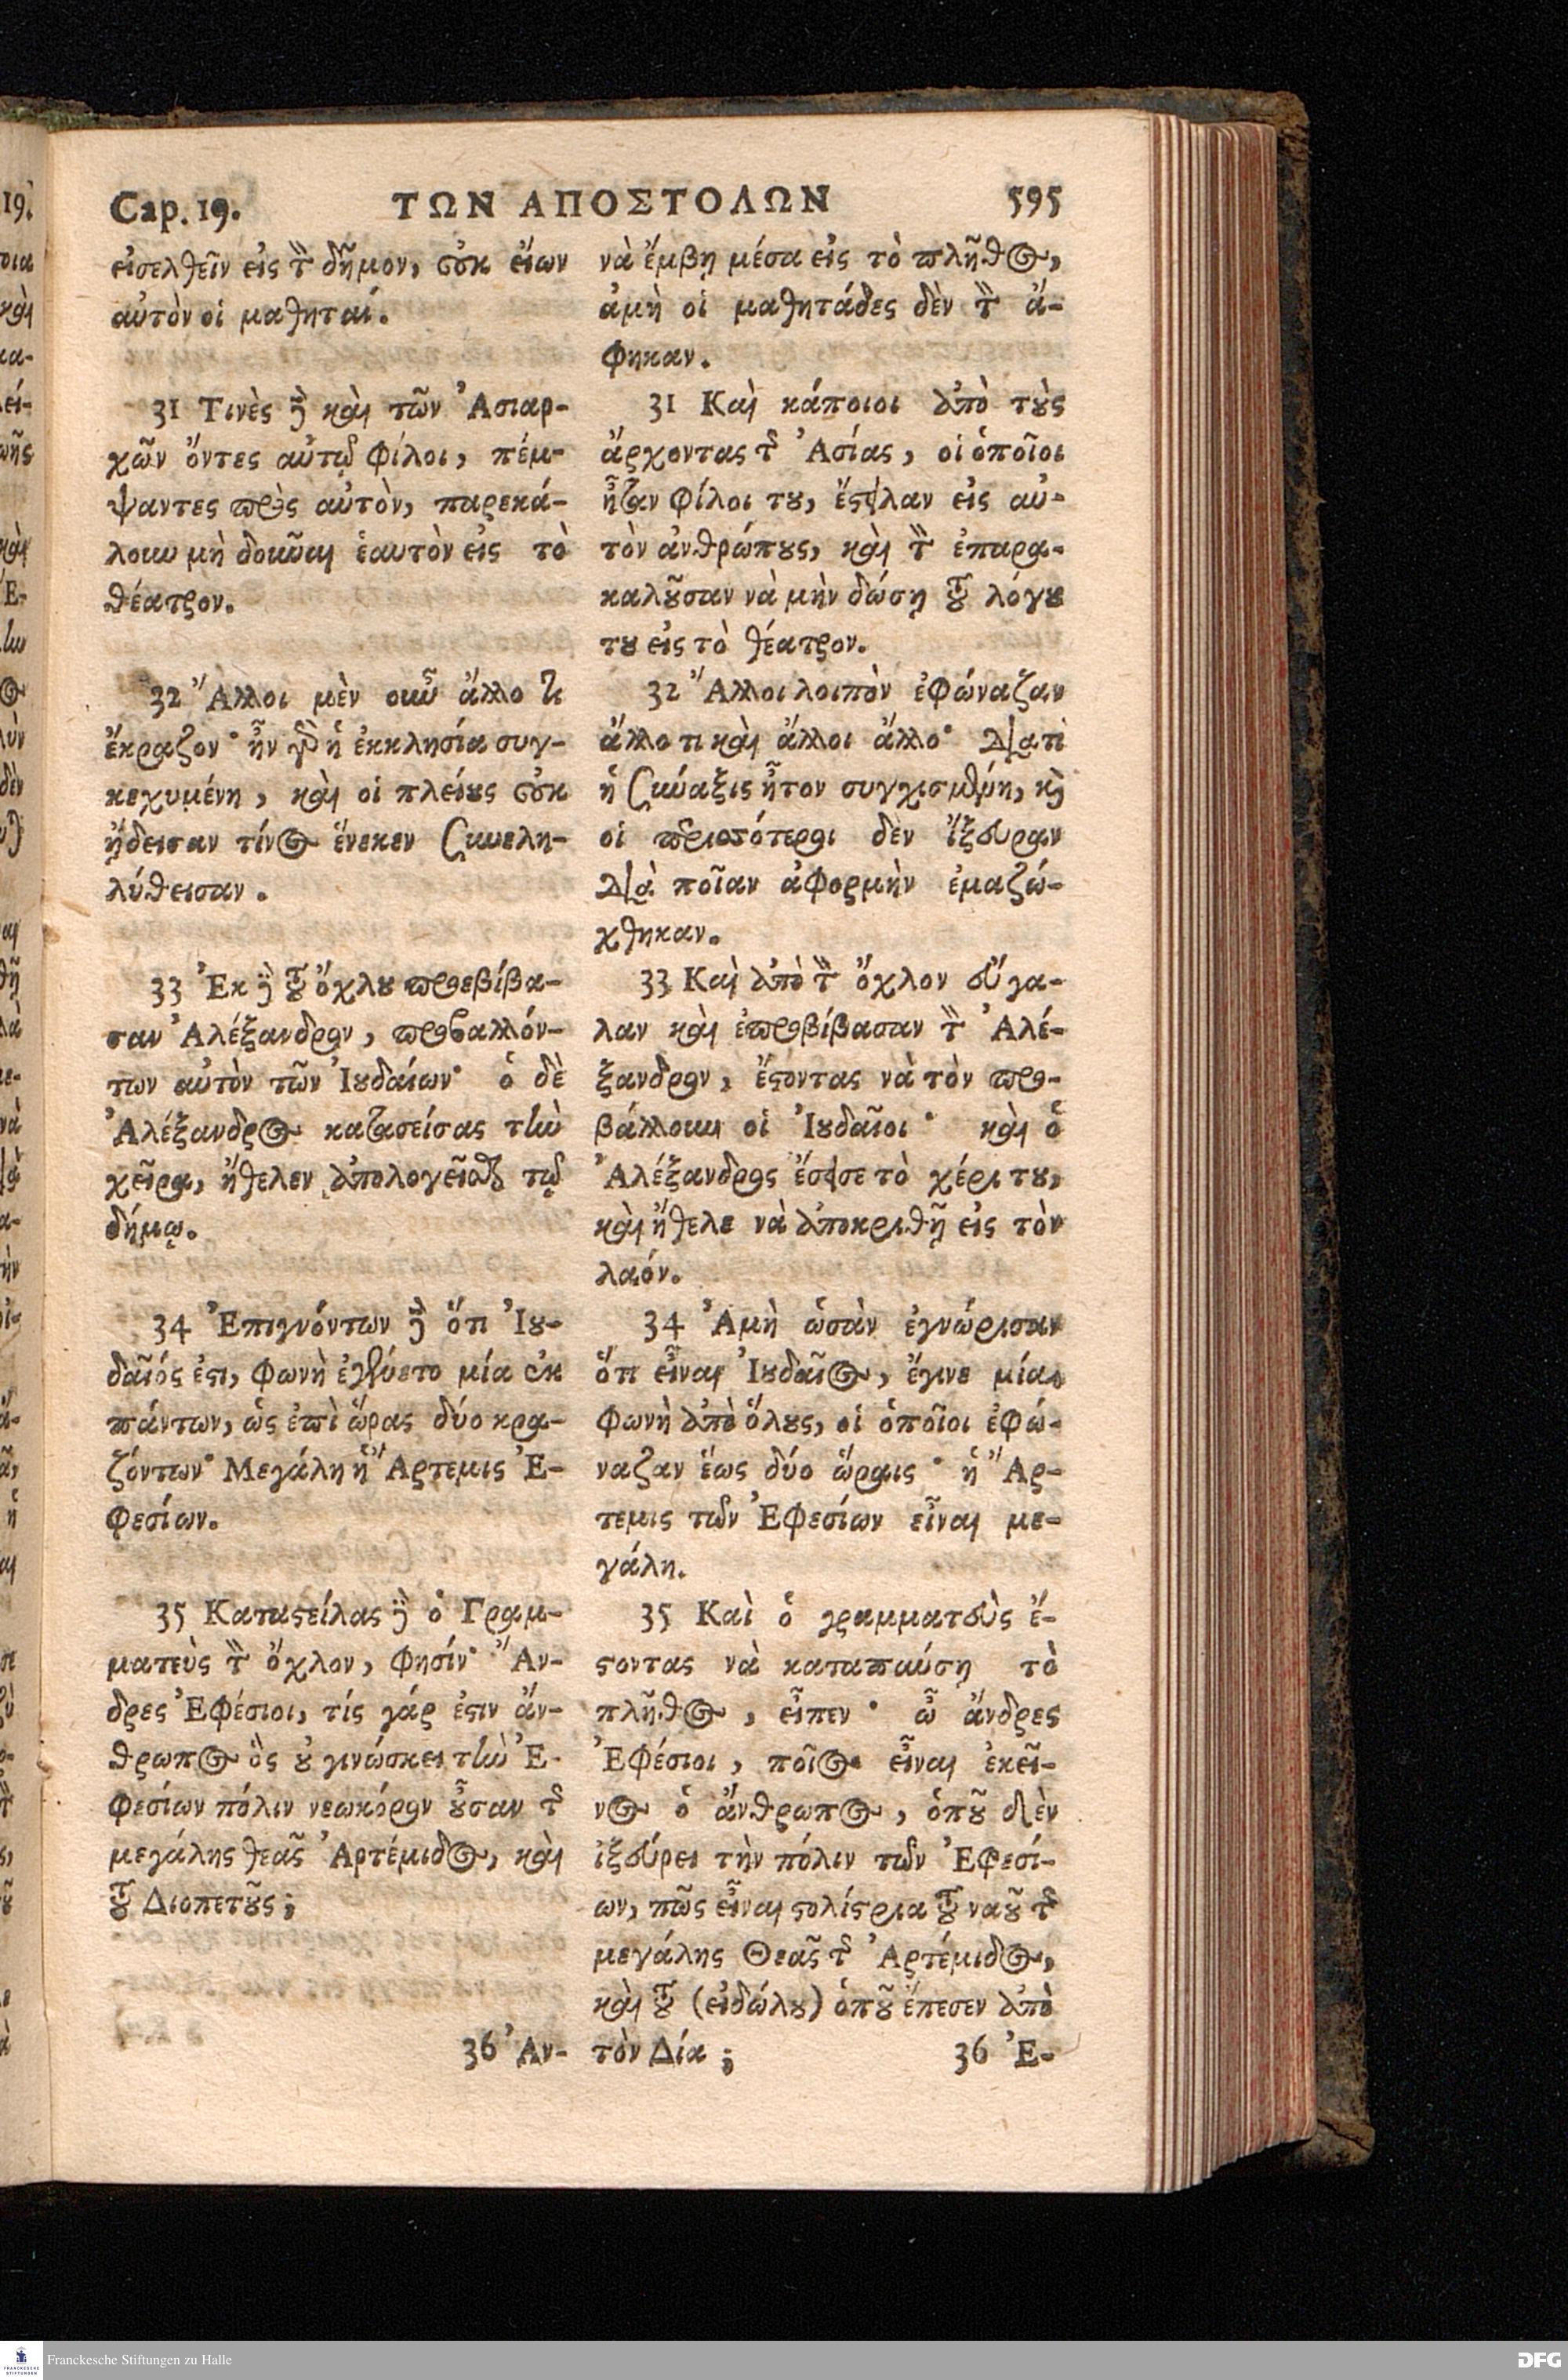 Cap. 19. ΤΩΝ ΑΠΟΣΤΟΛΩΝ 595
εἰσελθεῖν εἰς τὸν δῆμον, οὐκ εἴων
αὐτὸν οἱ μαθηταί.
31 Τινὲς δὲ καὶ τῶν Ἀσιαρ-
χῶν ὄντες αὐτῷ φίλοι, πέμ-
ψαντες πρὸς αὐτὸν, παρεκά-
λουν μὴ δοῦναι ἑαυτὸν εἰς τὸ
θέατρον.
32 Ἄλλοι μὲν οὖν ἄλλο τι
ἔκραζον· ἦν γὰρ ἡ ἐκκλησία συγ-
κεχυμένη, καὶ οἱ πλείους οὐκ
ᾔδεισαν τίνος ἕνεκεν συνελη-
λύθεισαν.
33 Ἐκ δὲ τοῦ ὄχλου προεβίβα-
σαν Ἀλέξανδρον, προβαλλόν-
των αὐτὸν τῶν Ἰουδαίων· ὁ δὲ
Ἀλέξανδρος κατασείσας τὴν
χεῖρα, ἤθελεν ἀπολογεῖσθαι τῷ
δήμῳ.
34 Ἐπιγνόντων δὲ ὅτι Ἰου-
δαῖός ἐστι, φωνὴ ἐγένετο μία ἐκ
πάντων, ὡς ἐπὶ ὥρας δύο κρα-
ζόντων· Μεγάλη ἡ Ἄρτεμις Ἐ-
φεσίων.
35 Καταστείλας δὲ ὁ Γραμ-
ματεὺς τὸν ὄχλον, φησίν· Ἄν-
δρες Ἐφέσιοι, τίς γάρ ἐστιν ἄν-
θρωπος ὃς οὐ γινώσκει τὴν Ἐ-
φεσίων πόλιν νεωκόρον οὖσαν τῆς
μεγάλης θεᾶς Ἀρτέμιδος, καὶ
τοῦ Διοπετοῦς;
36 Ἀν-
νὰ ἔμβῃ μέσα εἰς τὸ πλῆθος,
ἀμὴ οἱ μαθητάδες δὲν τὸν ἄ-
φηκαν.
31 Καὶ κάποιοι ἀπὸ τοὺς
ἄρχοντας τῆς Ἀσίας, οἱ ὁποῖοι
ἦταν φίλοι του, ἔστειλαν εἰς αὐ-
τὸν ἀνθρώπους, καὶ τὸν ἐπαρα-
καλοῦσαν νὰ μὴν δώσῃ τοῦ λόγου
του εἰς τὸ θέατρον.
32 Ἄλλοι λοιπὸν ἐφώναζαν
ἄλλο τι καὶ ἄλλοι ἄλλο· διατὶ
ἡ σύναξις ἦτον συγχισμένη, καὶ
οἱ περισσότεροι δὲν ἴξευραν
διὰ ποῖαν ἀφορμὴν ἐμαζώ-
χθηκαν.
33 Καὶ ἀπὸ τὸν ὄχλον εὔγα-
λαν καὶ ἐπροβίβασαν τὸν Ἀλέ-
ξανδρον, ἔστοντας νὰ τὸν προ-
βάλλουν οἱ Ἰουδαῖοι· καὶ ὁ
Ἀλέξανδρος ἔσεισε τὸ χέρι του,
καὶ ἤθελε νὰ ἀποκριθῇ εἰς τὸν
λαόν.
34 Ἀμὴ ὡσὰν ἐγνώρισαν
ὅτι εἶναι Ἰουδαῖος, ἔγινε μία
φωνὴ ἀπὸ ὅλους, οἱ ὁποῖοι ἐφώ-
ναζαν ἕως δύο ὥραις· ἡ Ἄρ-
τεμις τῶν Ἐφεσίων εἶναι με-
γάλη.
35 Καὶ ὁ γραμματεὺς ἔ-
στοντας νὰ καταπαύσῃ τὸ
πλῆθος, εἶπεν· ὦ ἄνδρες
Ἐφέσιοι, ποῖος εἶναι ἐκεῖ-
νος ὁ ἄνθρωπος, ὁποῦ δὲν
ἰξεύρει τὴν πόλιν τῶν Ἐφεσί-
ων, πῶς εἶναι στολίστρια τοῦ ναοῦ τῆς
μεγάλης Θεᾶς τῆς Ἀρτέμιδος,
καὶ τοῦ (εἰδώλου) ὁποῦ ἔπεσεν ἀπὸ
τὸν Δία;
36 Ἐ-
Franckesche Stiftungen zu Halle
DFG